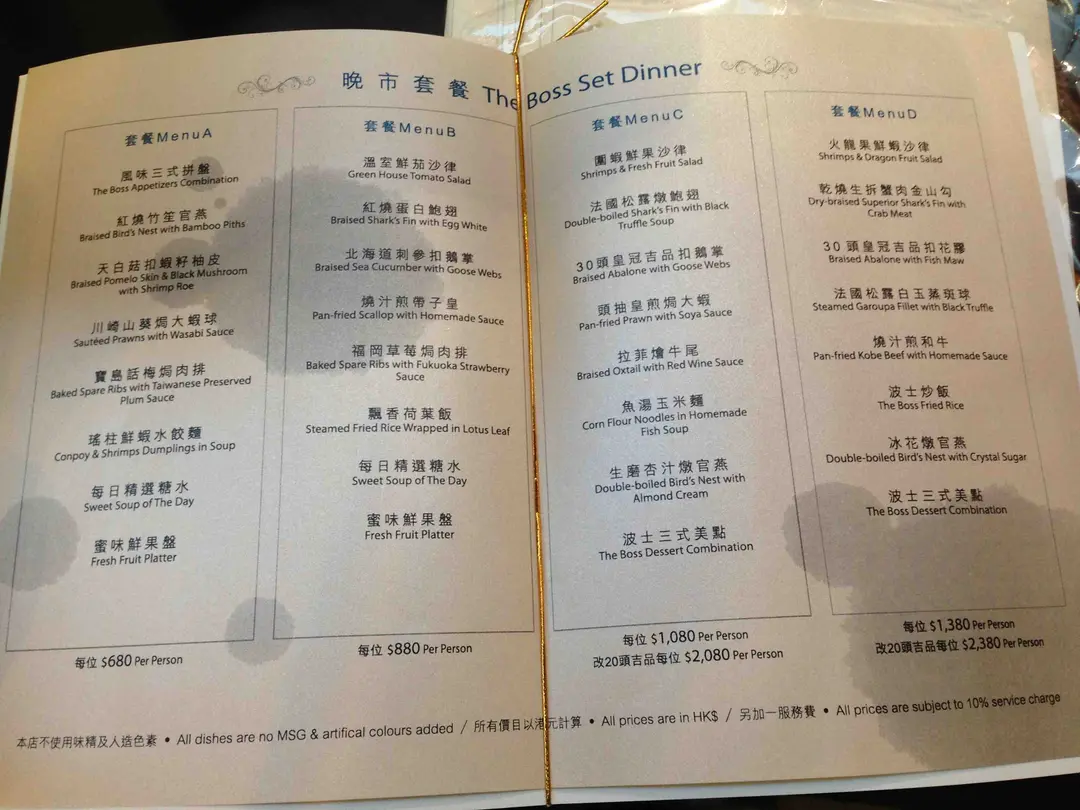 晚市套餐 The Boss Set Dinner
套餐MenuA
風味三式拼盤
The Boss Appetizers Combination
紅燒竹笙官燕
Braised Bird's Nest with Bamboo Piths
天白菇扣蝦籽柚皮
Braised Pomelo Skin & Black Mushroom
with Shrimp Roe
川崎山葵焗大蝦球
Sautéed Prawns with Wasabi Sauce
寶島話梅焗肉排
Baked Spare Ribs with Taiwanese Preserved
Plum Sauce
瑤柱鮮蝦水餃麵
Conpoy & Shrimps Dumplings in Soup
每日精選糖水
Sweet Soup of The Day
蜜味鮮果盤
Fresh Fruit Platter
每位 $680 Per Person
套餐MenuB
溫室鮮茄沙律
Green House Tomato Salad
紅燒蛋白鮑翅
Braised Shark's Fin with Egg White
北海道刺參扣鵝掌
Braised Sea Cucumber with Goose Webs
燒汁煎帶子皇
Pan-fried Scallop with Homemade Sauce
福岡草莓焗肉排
Baked Spare Ribs with Fukuoka Strawberry
Sauce
飄香荷葉飯
Steamed Fried Rice Wrapped in Lotus Leaf
每日精選糖水
Sweet Soup of The Day
蜜味鮮果盤
Fresh Fruit Platter
每位 $880 Per Person
套餐MenuC
圍蝦鮮果沙律
Shrimps & Fresh Fruit Salad
法國松露燉鮑翅
Double-boiled Shark's Fin with Black
Truffle Soup
30頭皇冠吉品扣鵝掌
Braised Abalone with Goose Webs
頭抽皇煎焗大蝦
Pan-fried Prawn with Soya Sauce
拉菲燴牛尾
Braised Oxtail with Red Wine Sauce
魚湯玉米麵
Corn Flour Noodles in Homemade
Fish Soup
生磨杏汁燉官燕
Double-boiled Bird's Nest with
Almond Cream
波士三式美點
The Boss Dessert Combination
每位 $1,080 Per Person
改20頭吉品每位 $2,080 Per Person
套餐MenuD
火龍果鮮蝦沙律
Shrimps & Dragon Fruit Salad
乾燒生拆蟹肉金山勾
Dry-braised Superior Shark's Fin with
Crab Meat
30頭皇冠吉品扣花膠
Braised Abalone with Fish Maw
法國松露白玉蒸斑球
Steamed Garoupa Fillet with Black Truffle
燒汁煎和牛
Pan-fried Kobe Beef with Homemade Sauce
波士炒飯
The Boss Fried Rice
冰花燉官燕
Double-boiled Bird's Nest with Crystal Sugar
波士三式美點
The Boss Dessert Combination
每位 $1,380 Per Person
改20頭吉品每位 $2,380 Per Person
本店不使用味精及人造色素 • All dishes are no MSG & artifical colours added / 所有價目以港元計算 • All prices are in HK$ / 另加一服務費 • All prices are subject to 10% service charge